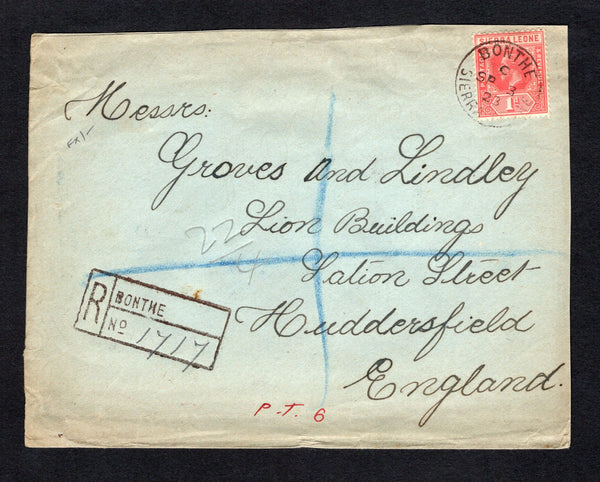 SIERRA LEONE
BONTHE
C
SP 3
23
SIERRA
1d
Messrs:
Groves and Lindley
Lion Buildings
Sation Street
Huddersfield
England.
22/4
R
BONTHE
No 1717
P.T. 6